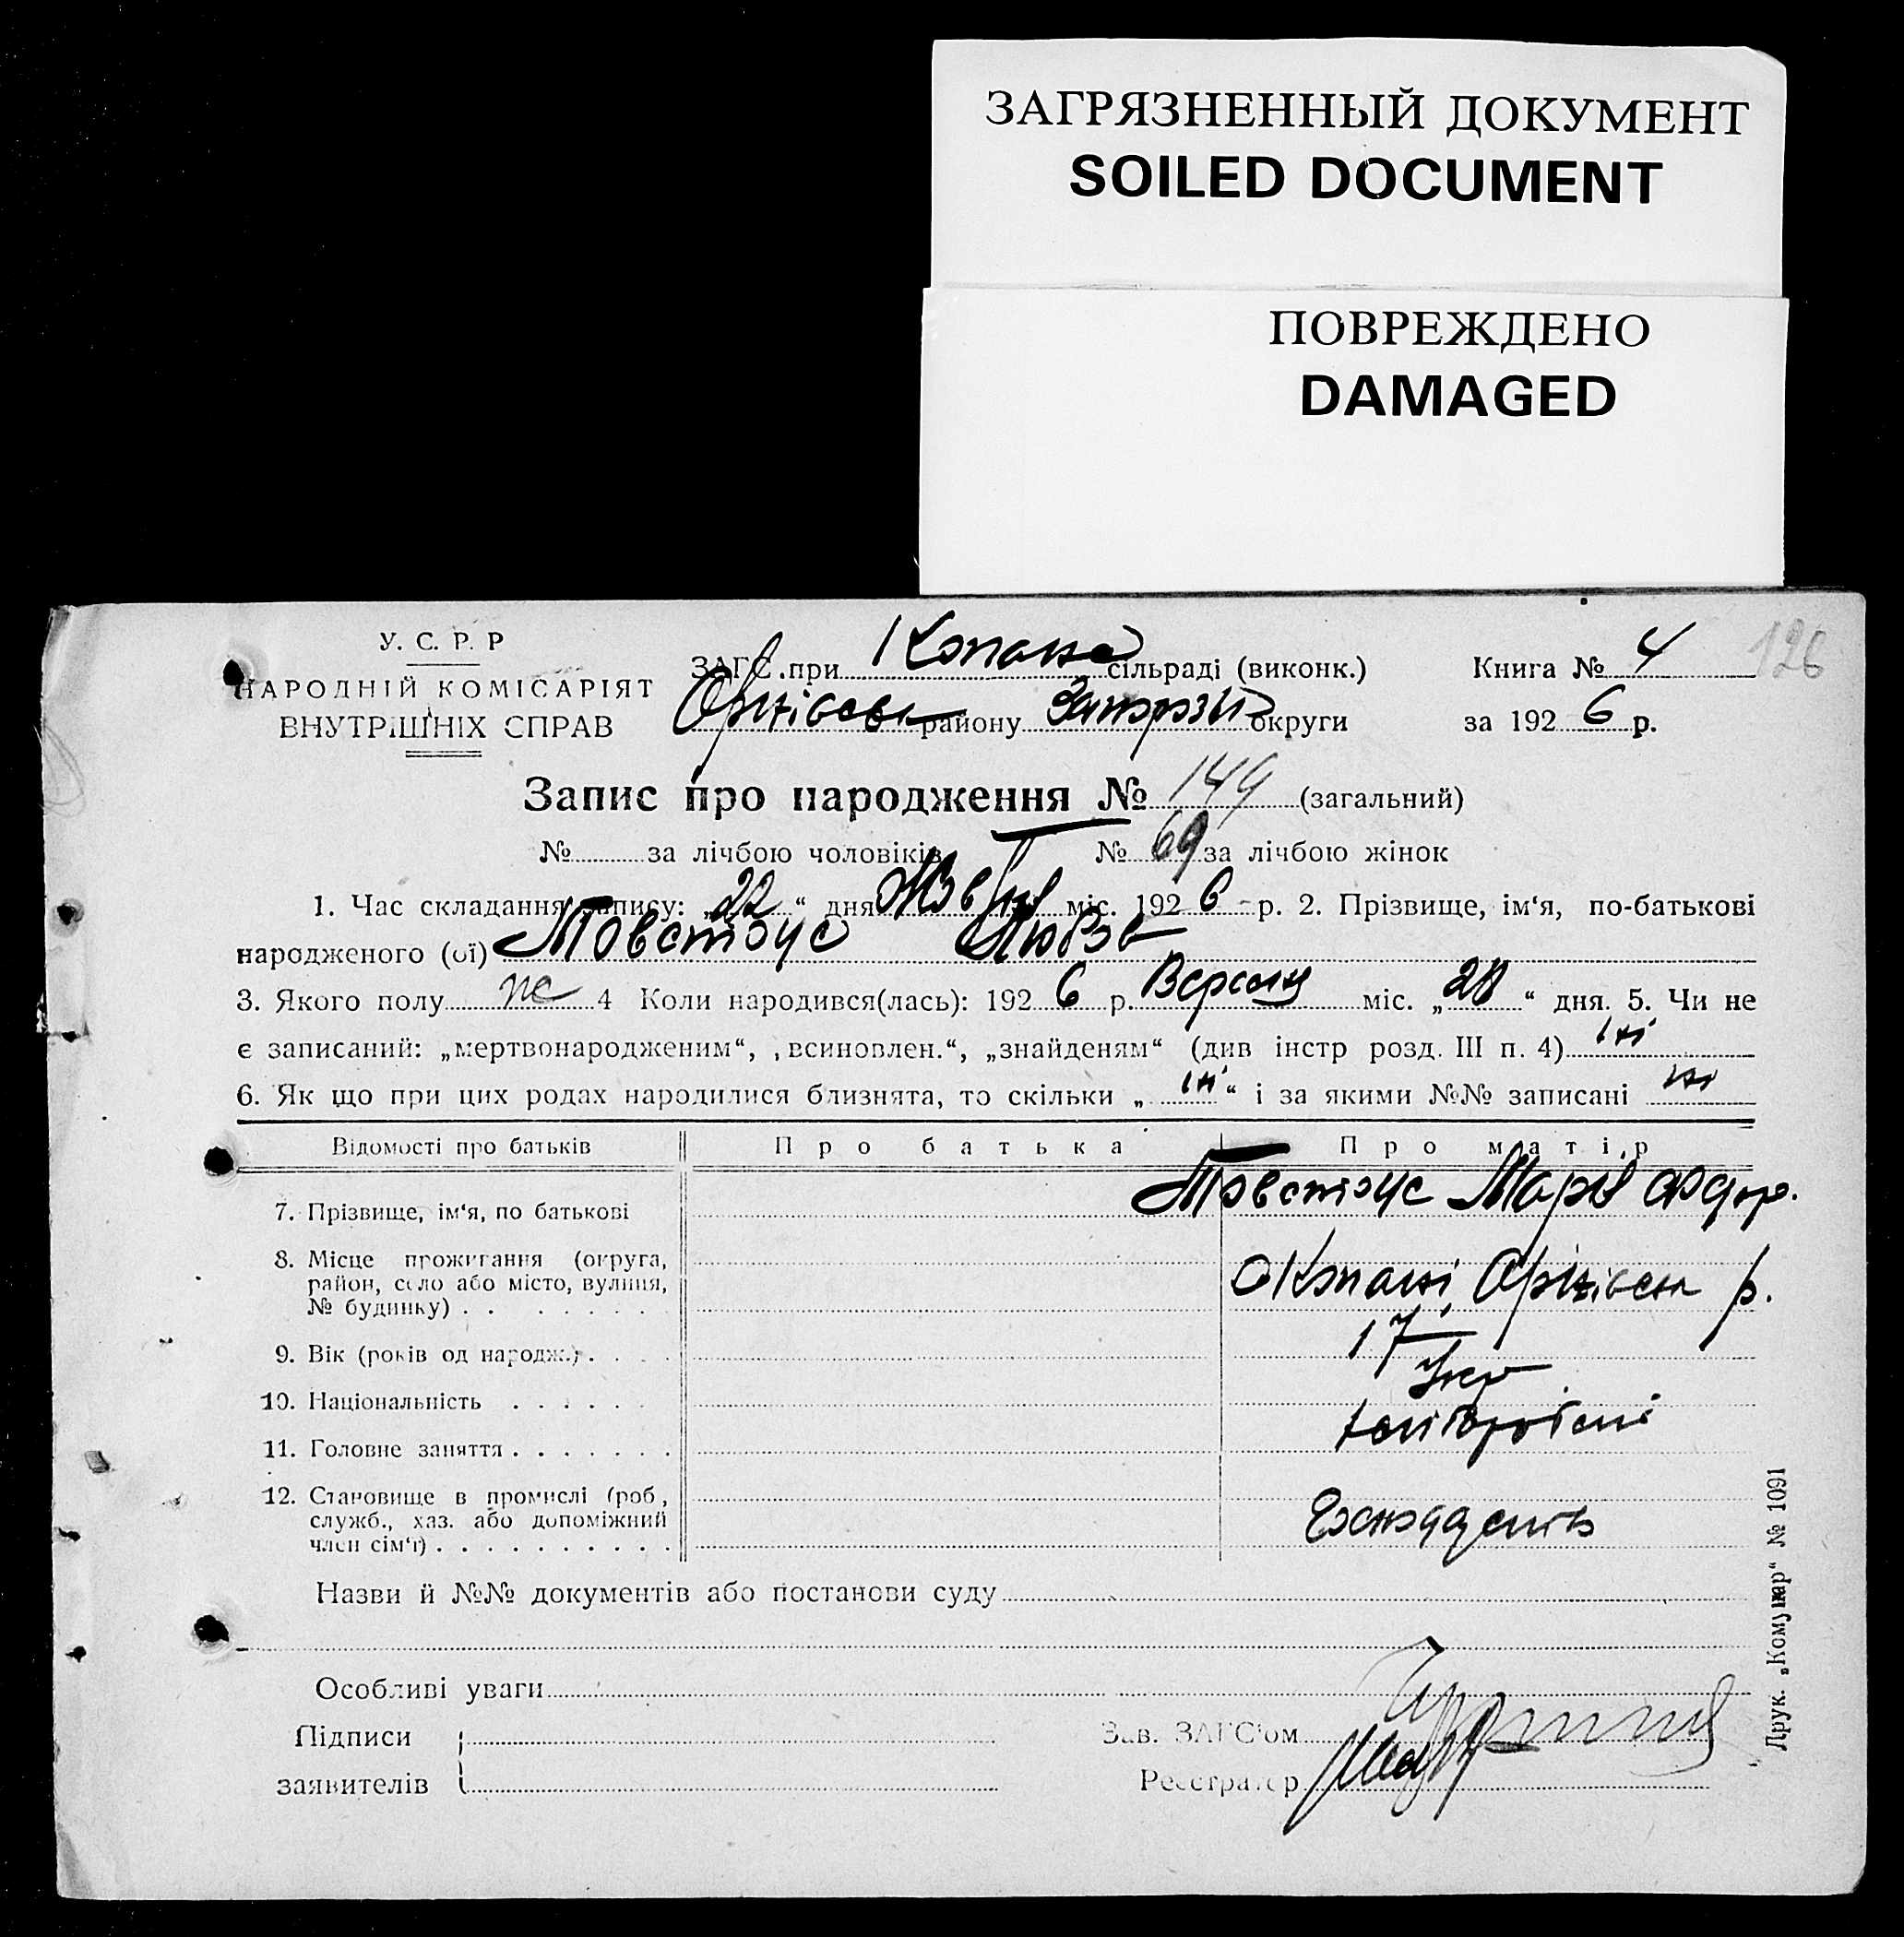 ЗАГРЯЗНЕННЫЙ ДОКУМЕНТ
SOILED DOCUMENT
ПОВРЕЖДЕНО
DAMAGED
126
У. С. Р. Р
НАРОДНІЙ КОМІСАРІЯТ
ВНУТРІШНІХ СПРАВ
ЗАГС при Копансь сільраді (виконк.) Книга № 4
Оріхівськ району Запорізьк округи за 192 6 р.
Запис про народження № 149 (загальний)
№ за лічбою чоловіків № 69 за лічбою жінок
1. Час складання запису: „22“ дня Жовтня міс. 192 6 р. 2. Прізвище, ім'я, по-батькові
народженого (ої) Товстоус Любов
3. Якого полу ж 4 Коли народився(лась): 192 6 р. Вересня міс. „28“ дня. 5. Чи не
є записаний: „мертвонародженим“, „всиновлен.“, „знайденям“ (див інстр розд. III п. 4) ні
6. Як що при цих родах народилися близнята, то скільки „ ні “ і за якими №№ записані ні
Відомості про батьків Про батька Про матір
7. Прізвище, ім'я, по батькові Товстоус Марія Федор.
8. Місце прожигання (округа,
район, село або місто, вулиця,
№ будинку) . . Копані, Оріхівськ р.
9. Вік (років од народж.) . 17
10. Національність Укр
11. Головне заняття . хліборобство
12. Становище в промислі (роб,
служб., хаз. або допоміжний
член сім'ї) .
Назви й №№ документів або постанови суду
Особливі уваги
Підписи
заявителів
Зав. ЗАГС'ом
Реєстратор
Друк. „Комунар“ № 1091